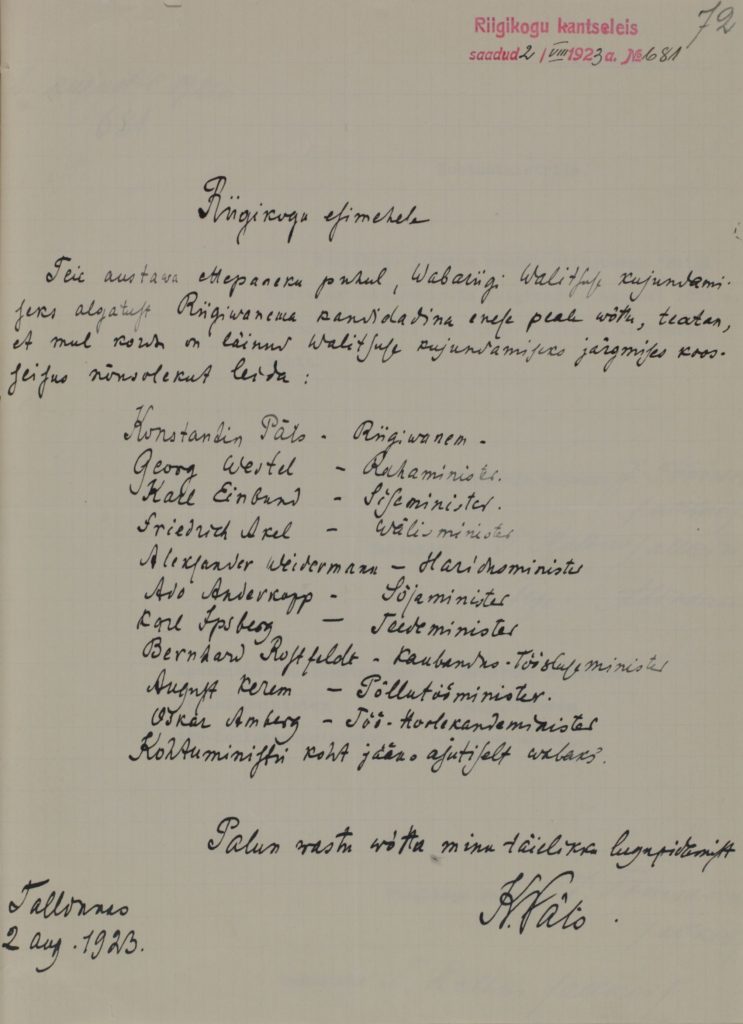 72
Riigikogu kantseleis
saadud 2/VIII 1923 a. № 681
Riigikogu esimehele
Teie austawa ettepaneku puhul, Wabariigi Walitsuse kujundami-
seks algatust Riigiwanema kandidadina enese peale wõtta, teatan,
et mul korda on läinud Walitsuse kujundamiseks järgmises koos-
seisus nõusolekut leida:
Konstantin Päts - Riigiwanem -
Georg Westel - Rahaminister.
Karl Einbund - Siseminister.
Friedrich Akel - Wälisminister
Aleksander Weidermann - Haridusminister
Ado Anderkopp - Sõjaminister
Karl Ipsberg - Teedeminister
Bernhard Rostfeldt - Kaubandus-Tööstuseminister
August Kerem - Põllutööminister.
Oskar Amberg - Töö-Hoolekandeminister
Kohtuministri koht jääks ajutiselt wabaks.
Palun wastu wõtta minu täielikku lugupidamist
K. Päts.
Tallinnas
2 aug. 1923.